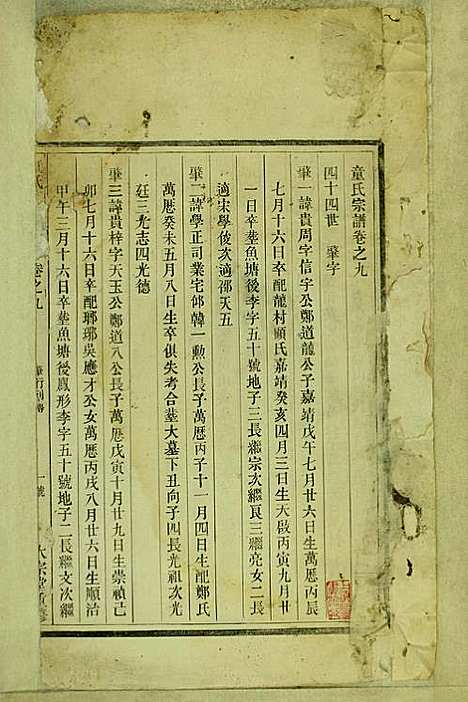 童氏宗譜卷之九
四十四世　肇字
肇一諱貴周字信宇公鄭道龍公子嘉靖戊午七月廿六日生萬厯丙辰
七月十六日卒配龍村頋氏嘉靖癸亥四月三日生天啟丙寅九月廿
一日卒塟魚塘後李字五十號地子三長繼宗次繼良三繼亮女二長
適宋學俊次適邵天五
肇二諱學正司業宅邨韓一勳公長子萬厯丙子十一月四日生配鄭氏
萬厯癸未五月八日生卒俱失考合塟大墓下丑向子四長光祖次光
廷三光志四光德
肇三諱貴梓字天玉公鄭道八公長子萬厯戊寅十月廿九日生崇禎己
卯七月十六日卒配瑯琊吳應才公女萬厯丙戌八月廿六日生順治
甲午二月十六日卒塟魚塘後鳳形李字五十號地子二長繼文次繼
卷之九
肇行列傳
一號